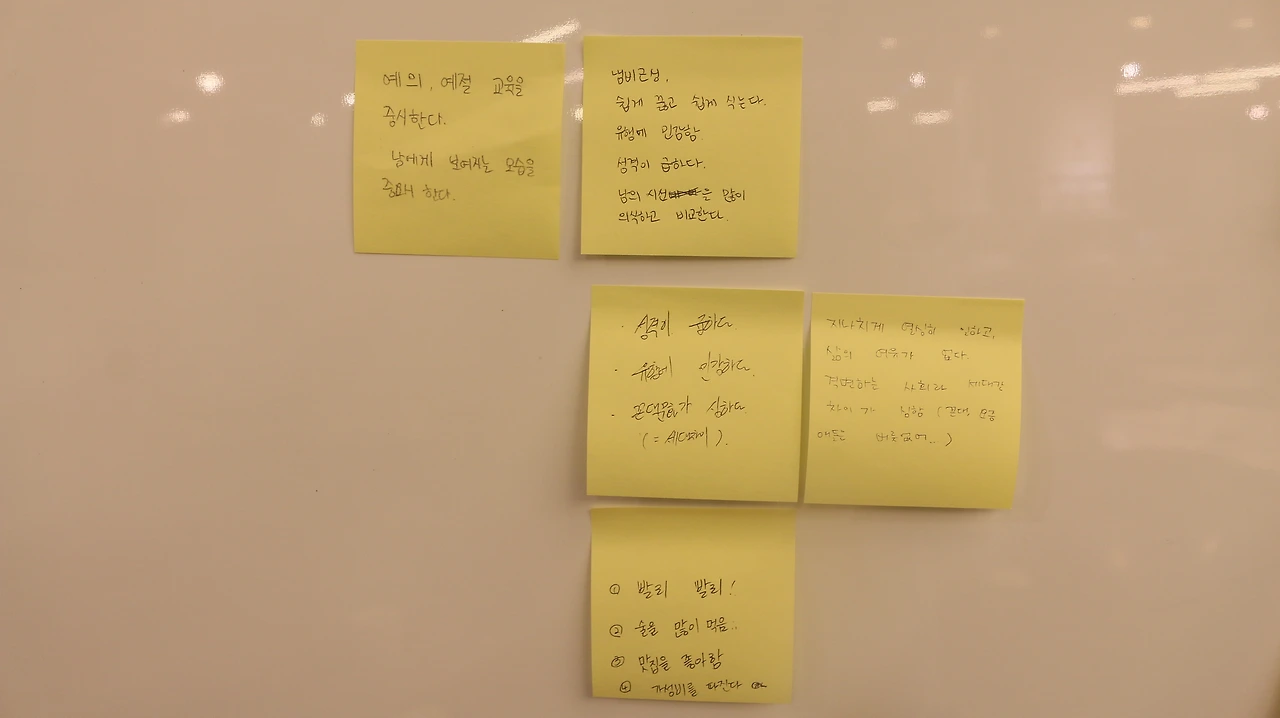 예의, 예절 교육을
중시한다.
남에게 보여지는 모습을
중요시 한다.
냄비근성,
쉽게 끓고 쉽게 식는다.
유행에 민감함
성격이 급하다.
남의 시선을 많이
의식하고 비교한다.
· 성격이 급하다.
· 유행에 민감하다.
· 꼰대문화가 심하다
(= 세대차이).
지나치게 열심히 일하고,
삶의 여유가 없다.
격변하는 사회라 세대간
차이가 심함 (꼰대, 요즘
애들은 버릇없어..)
① 빨리 빨리!
② 술을 많이 먹음..
③ 맛집을 좋아함
④ 가성비를 따진다